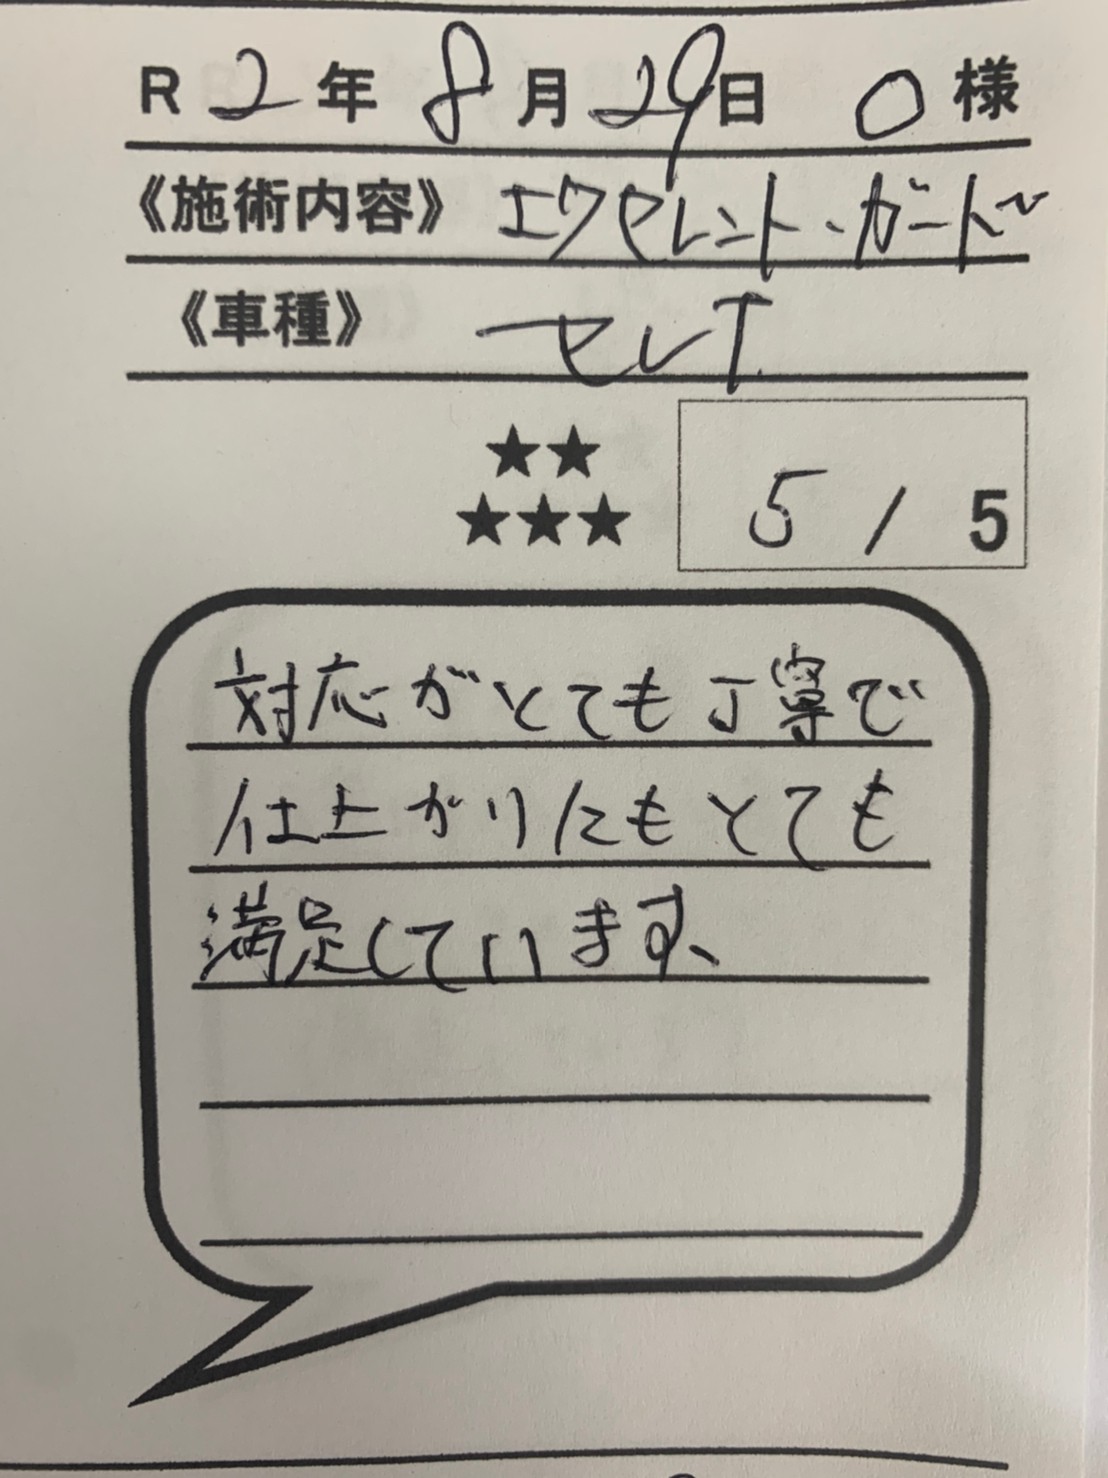 R 2年 8月 29日 O 様
《施術内容》 エクセレント・ガード
《車種》 セレナ
★★
★★★ 5 / 5
対応がとても丁寧で
仕上がりにもとても
満足しています、